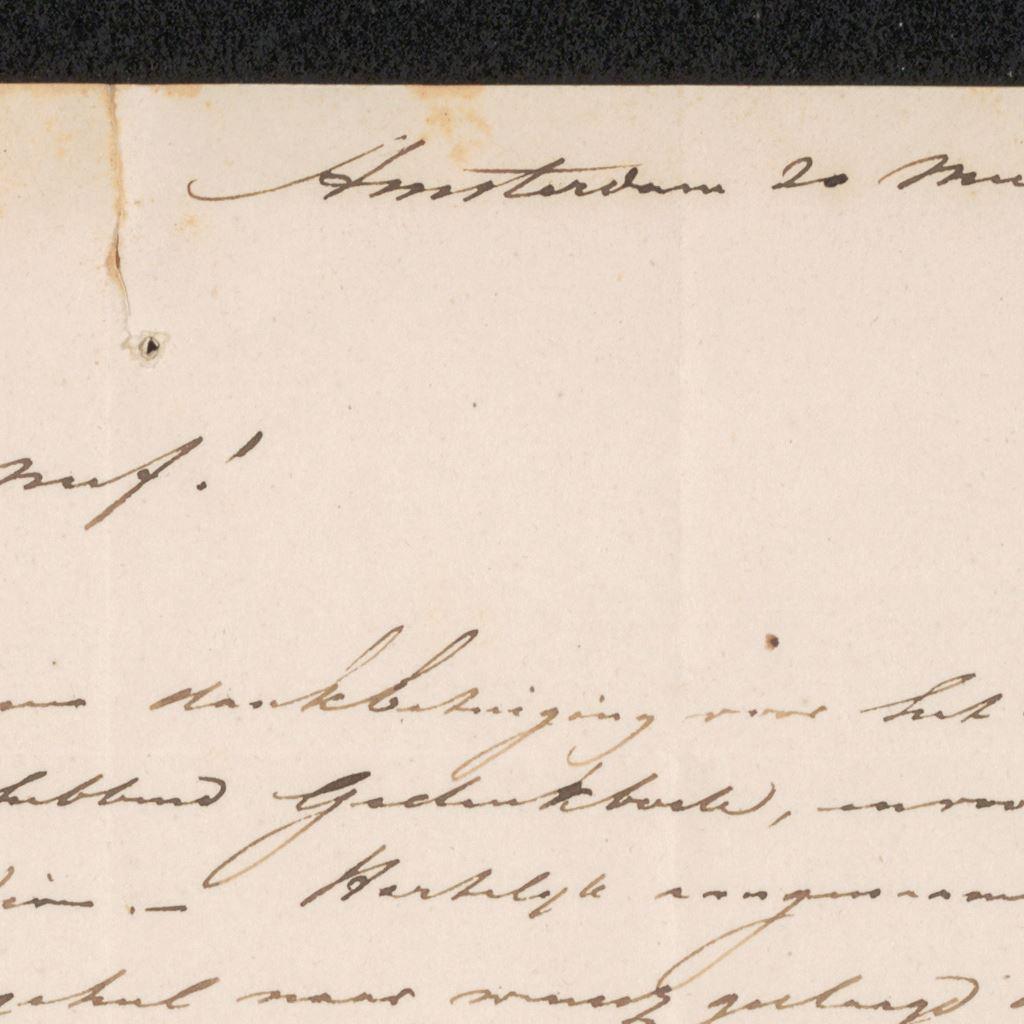 Amsterdam 20
neef!
dankbetuiging voor het
hebbend Gedenkboek,
Hartelyk aangenaam
geheel naar wensch geslaagd